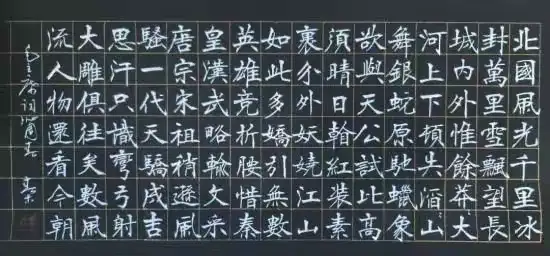 北國風光千里冰
封萬里雪飄望長
城内外惟餘莽、大
河上下頓失滔、山
舞銀蛇原馳蠟象
欲與天公試比高
須晴日翰紅裝素
裹分外妖嬈江山
如此多嬌引無數
英雄竞折腰惜秦
皇漢武略輸文采
唐宗宋祖稍遜風
騷一代天驕成吉
思汗只識彎弓射
大雕俱往矣數風
流人物還看今朝
毛主席词沁園春